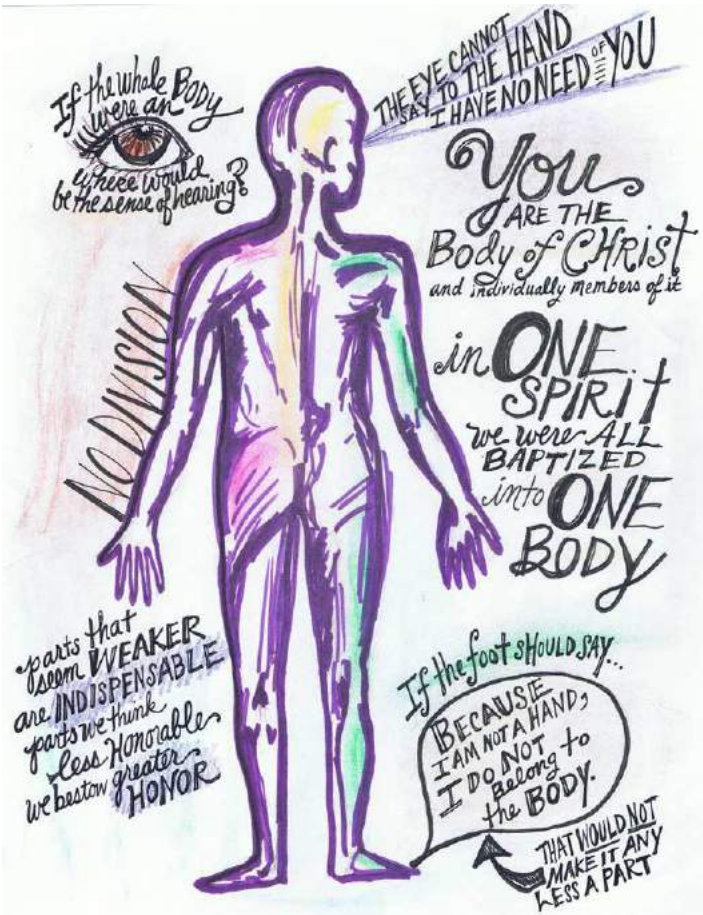 If the whole Body
were an
where would
be the sense of hearing?
THE EYE CANNOT
SAY TO THE HAND
I HAVE NO NEED OF YOU
You
ARE THE
Body of CHRist
and individually members of it
NO DIVISION
in ONE
SPIRit
we were ALL
BAPTIZED
into ONE
BODy
parts that
seem WEAKER
are INDISPENSABLE
parts we think
less Honorable
we bestow greater
HONOR
If the foot sHOULD SAY...
BECAUSE
I AM NOT A HAND,
I DO NOT
Belong to
the BODY.
THAT WOULD NOT
MAKE IT ANY
LESS A PART